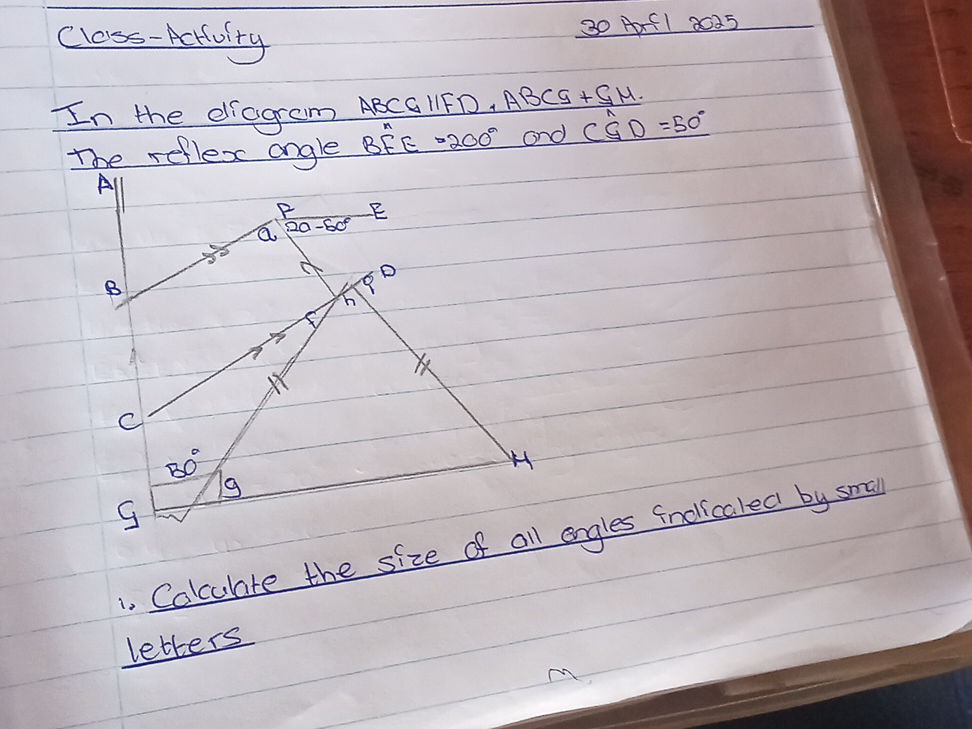 Class-Activity
30 April 2025
In the diagram ABCG||FD, ABCG+GH.
The reflex angle BF̂E =200° and CĜD =50°
A
F
E
a
2a-60°
B
D
i
h
f
C
50°
g
H
G
1. Calculate the size of all angles indicated by small
letters